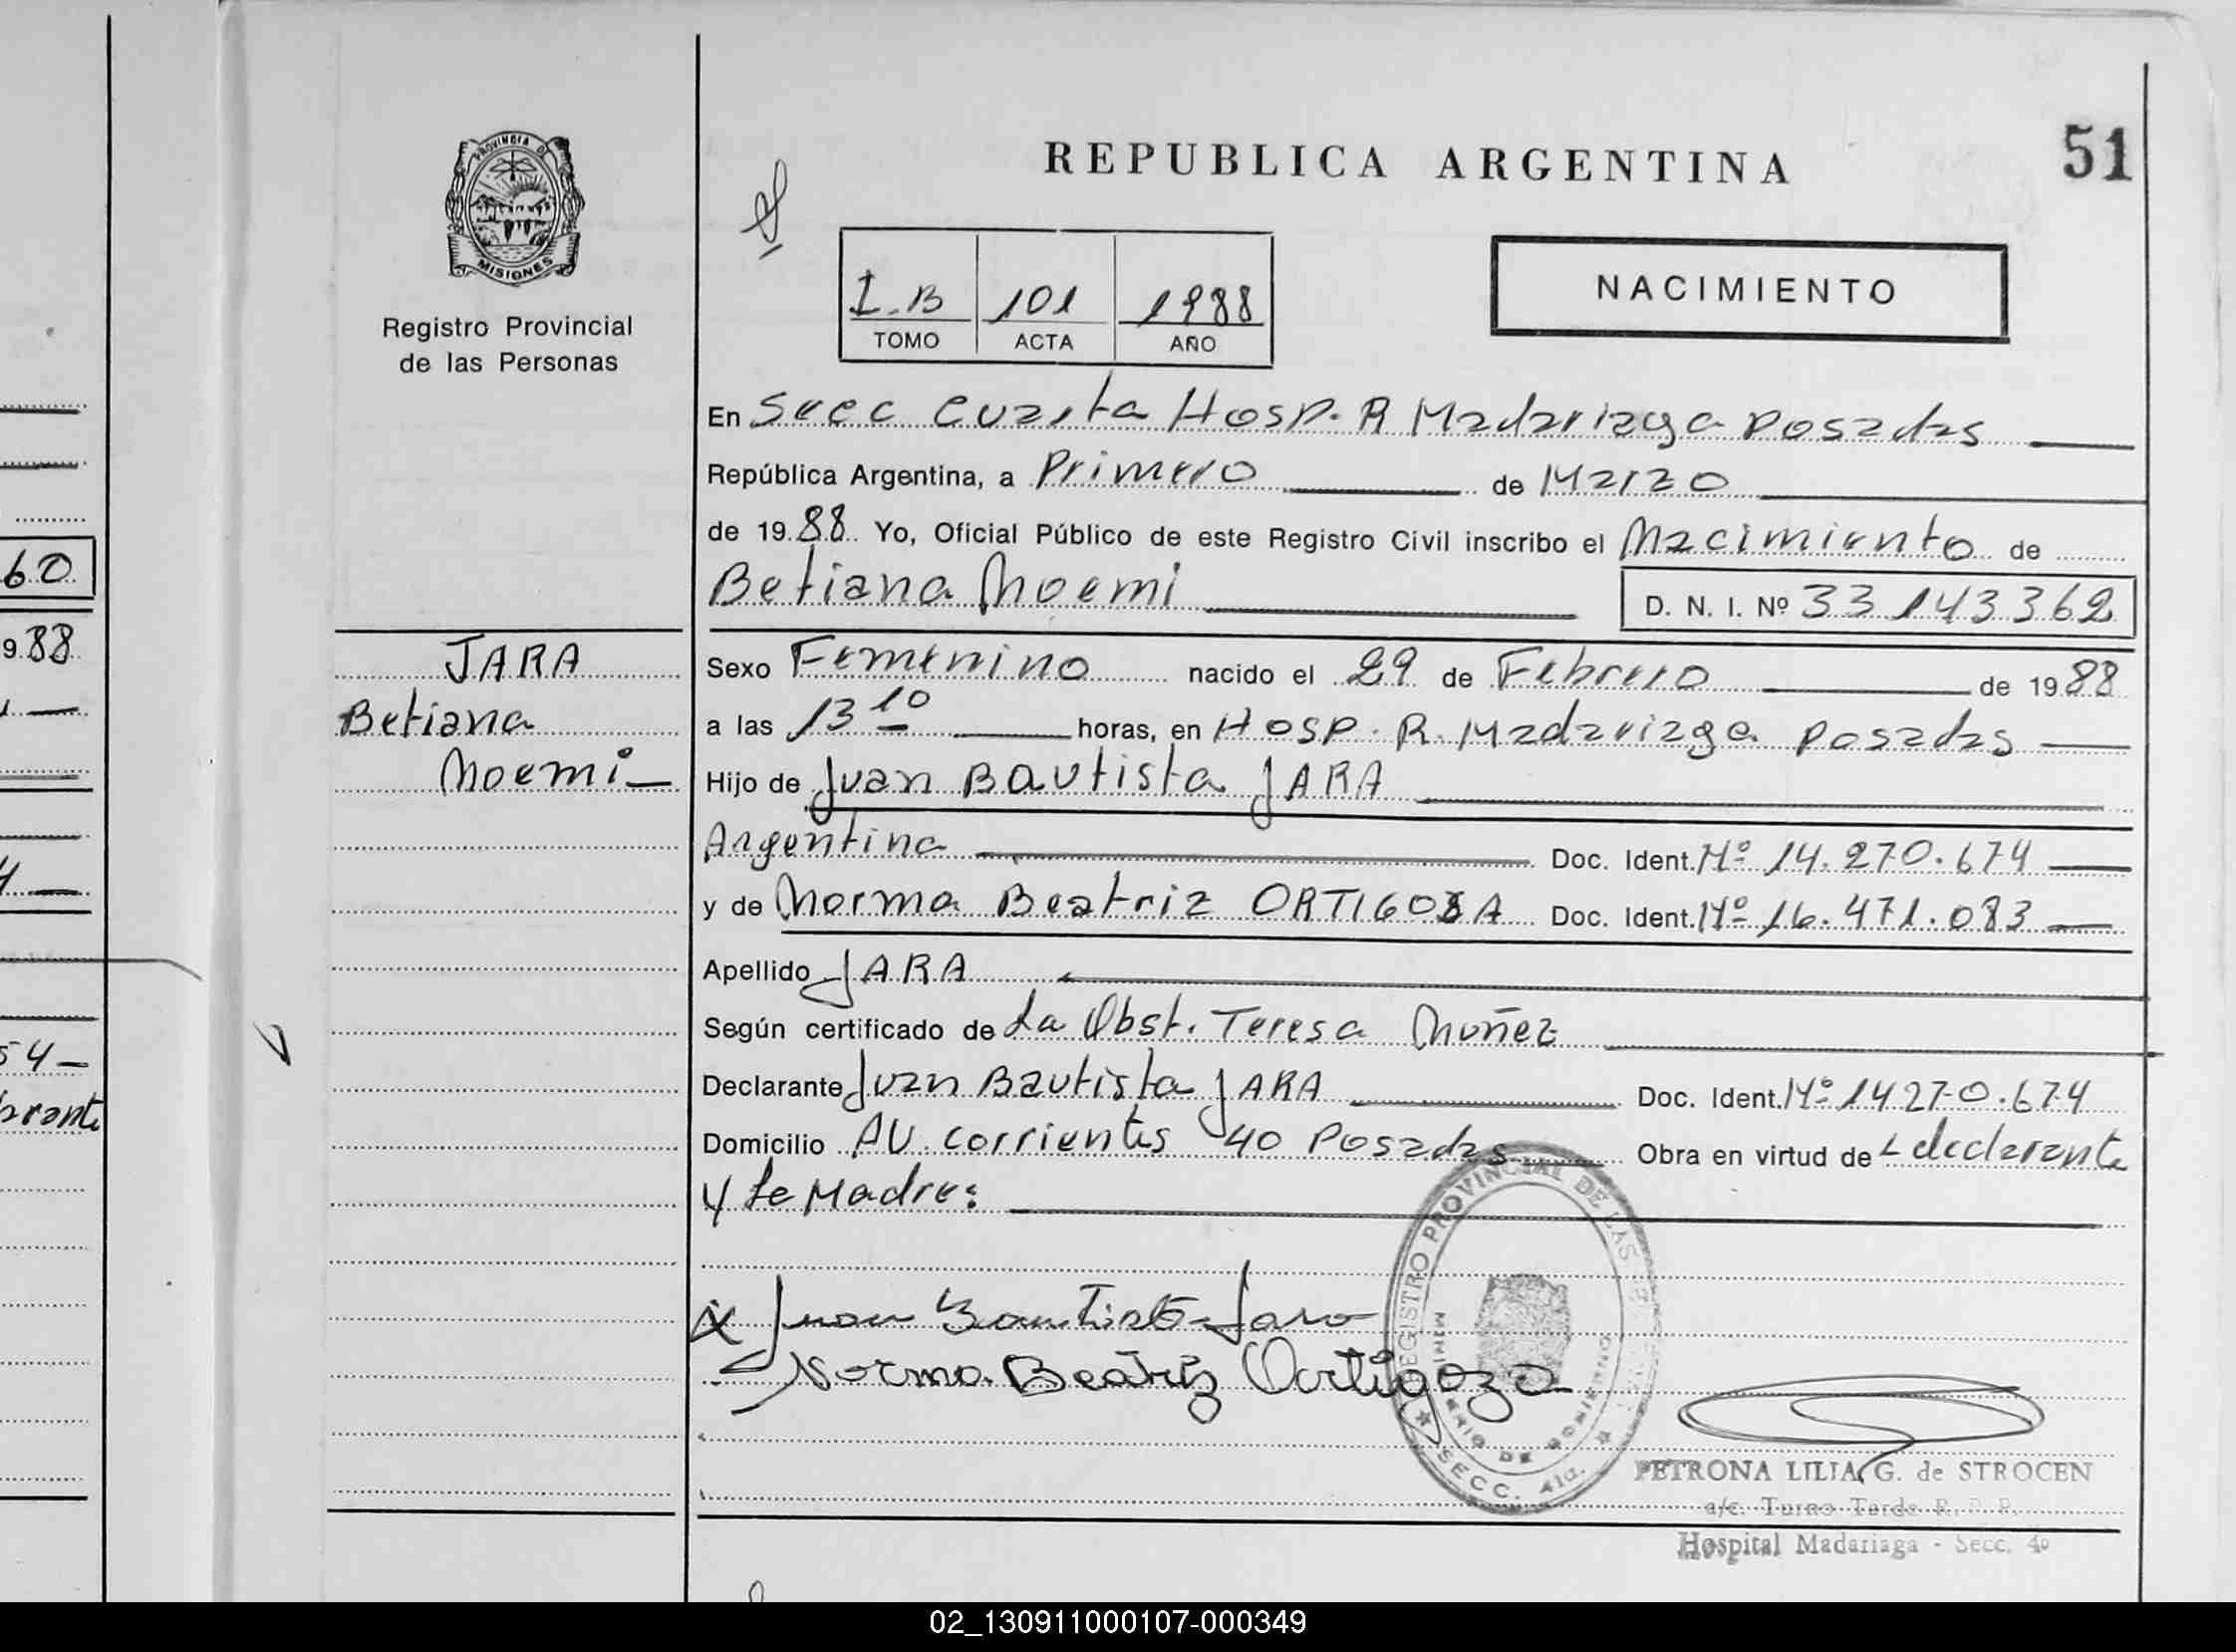 60
9 88
54
PROVINCIA DE
MISIONES
Registro Provincial
de las Personas
JARA
Betiana
Noemi
REPUBLICA ARGENTINA
51
I-B 101 1988
TOMO ACTA AÑO
NACIMIENTO
En Secc Cuarta Hosp. R Madariaga Posadas
República Argentina, a Primero de Marzo
de 1988 Yo, Oficial Público de este Registro Civil inscribo el Nacimiento de
Betiana Noemi D. N. I. Nº 33 143 362
Sexo Femenino nacido el 29 de Febrero de 1988
a las 13 10 horas, en Hosp. R. Madariaga Posadas
Hijo de Juan Bautista JARA
Argentina Doc. Ident. Nº 14.270.674
y de Norma Beatriz ORTIGOZA Doc. Ident. Nº 16.471.083
Apellido JARA
Según certificado de La Obst. Teresa Nuñez
Declarante Juan Bautista JARA Doc. Ident. Nº 14270.674
Domicilio AV. Corrientes 40 Posadas Obra en virtud de declarante
y la Madre:
REGISTRO PROVINCIAL DE LAS
MINISTERIO DE GOBIERNO
SECC. 4ta.
X Juan Bautista Jara
Norma Beatriz Ortigoza
PETRONA LILIA G. de STROCEN
a/c. Turno Tarde R. P. P.
Hospital Madariaga - Secc. 4º
02_130911000107-000349